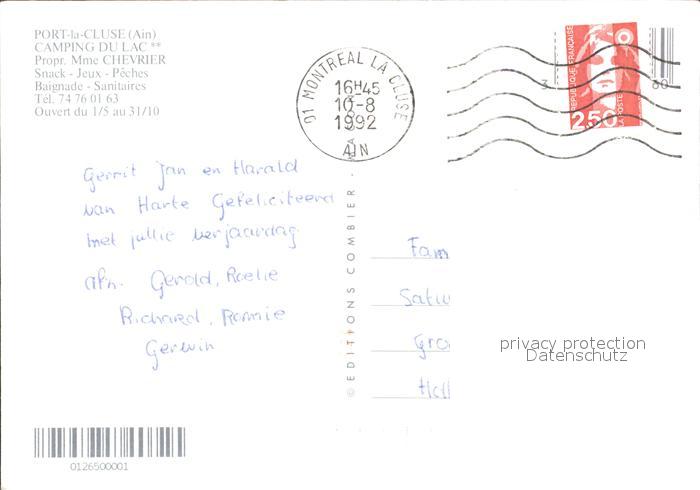 PORT-la-CLUSE (Ain)
CAMPING DU LAC **
Propr. Mme CHEVRIER
Snack - Jeux - Pêches
Baignade - Sanitaires
Tél. 74 76 01 63
Ouvert du 1/5 au 31/10
01 MONTREAL LA CLUSE
16H45
10-8
1992
AIN
REPUBLIQUE FRANÇAISE
2,50
LA POSTE
3 80
Gerrit Jan en Harald
van Harte Gefeliciteerd
met jullie verjaardag
afn. Gerold, Roelie
Richard, Rennie
Gerwin
© EDITIONS COMBIER -
Fam
Gro
Holl
privacy protection
Datenschutz
0126500001